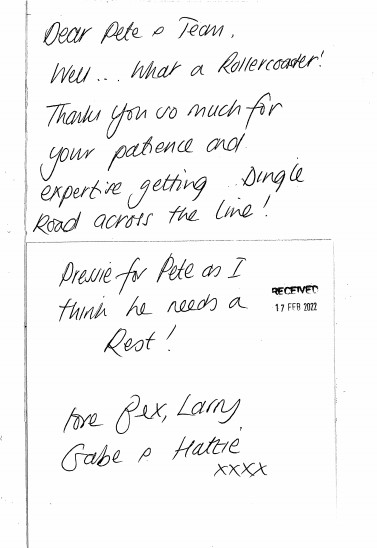 Dear Pete & Team,
Well... What a Rollercoaster!
Thank you so much for
your patience and
expertise getting Dingle
Road across the line!
Pressie for Pete as I
think he needs a
Rest!
RECEIVED
17 FEB 2022
Love Bex, Larry,
Gabe & Hattie
xxxx